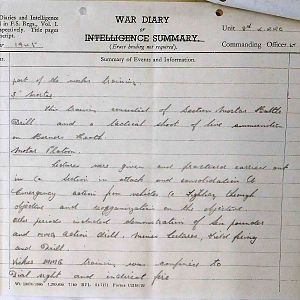 Diaries and Intelligence
in F.S. Regs., Vol. I.
respectively. Title pages
script.
WAR DIARY
OF
INTELLIGENCE SUMMARY.
(Erase heading not required).
Unit
Commanding Officer
1945
Summary of Events and Information.
part of the weeks training
3" Mortar
This training consisted of Section Mortar Battle
Drill and a tactical shoot of live ammunition
on
Motor Platoon.
Lectures were given and practices carries out
in (a Section in attack and consolidation (b
Emergency action from vehicles (c Fighting through
objective and reorganization on the objective
other periods included demonstration of six pounder
and crews action drill, mines lectures, Field firing
and Drill.
Vickers MMG training was confined to
Dial sight and indirect fire